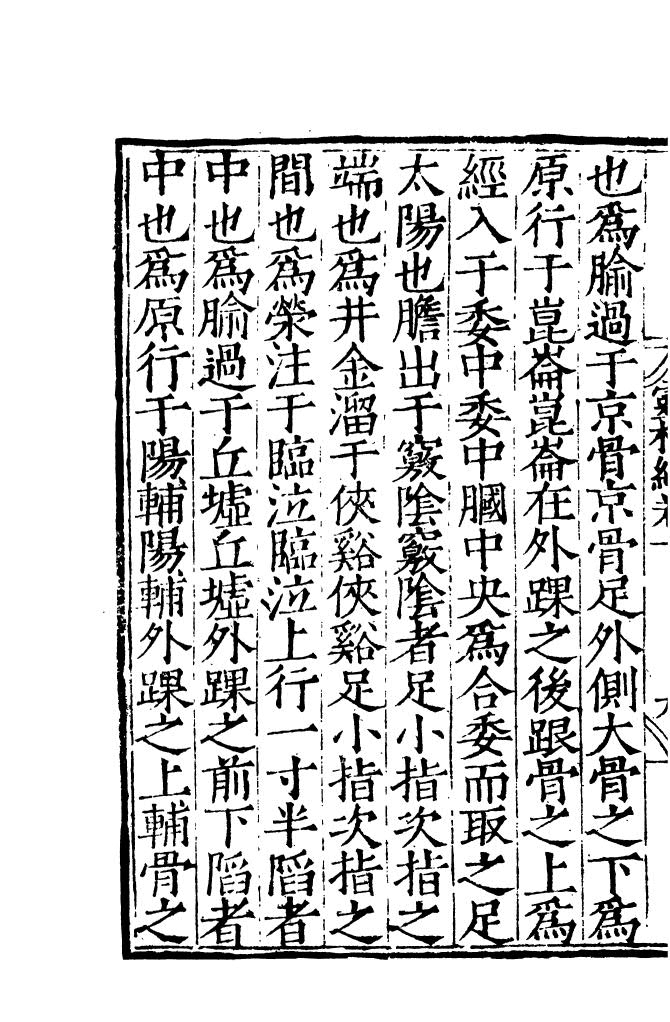 也爲腧過于京骨京骨足外側大骨之下爲
原行于崑崙崑崙在外踝之後跟骨之上爲
經入于委中委中膕中央爲合委而取之足
太陽也膽出于竅陰竅陰者足小指次指之
端也爲井金溜于俠谿俠谿足小指次指之
間也爲滎注于臨泣臨泣上行一寸半陷者
中也爲腧過于丘墟丘墟外踝之前下陷者
中也爲原行于陽輔陽輔外踝之上輔骨之